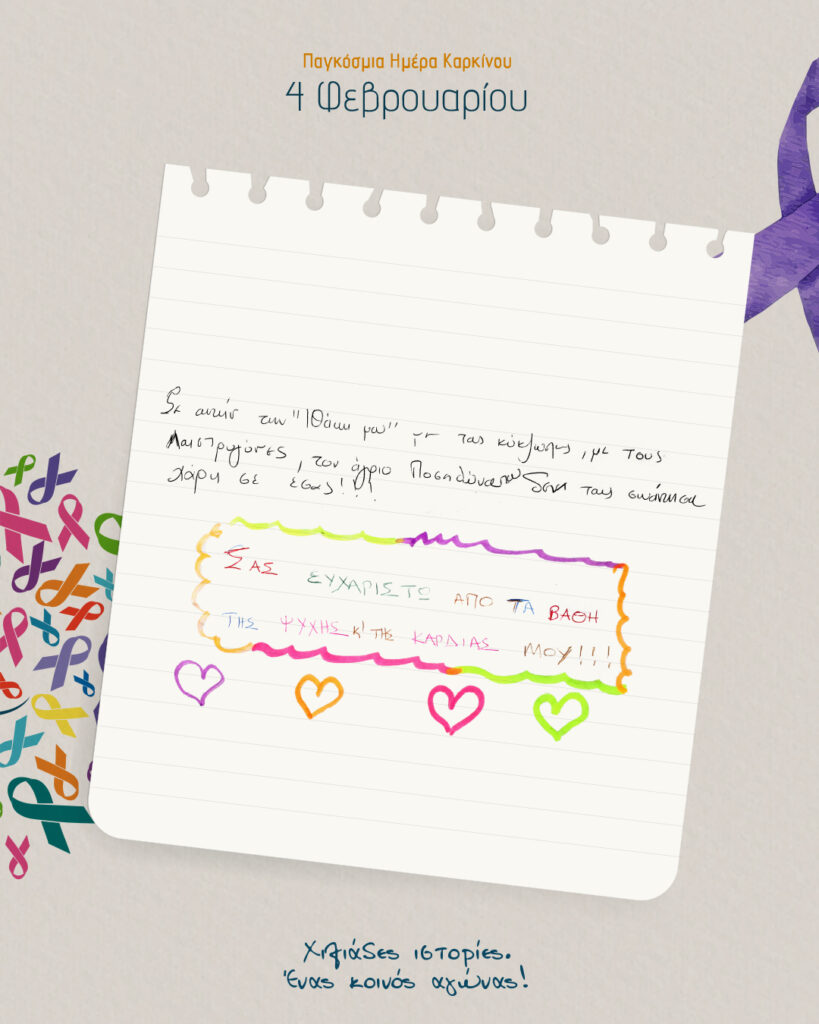 Παγκόσμια Ημέρα Καρκίνου
4 Φεβρουαρίου
Σε αυτήν την "Ιθάκη μου" με τους κύκλωπες, με τους
Λαιστρυγόνες, τον άγριο Ποσειδώνα δεν τους συνάντησα
χάρη σε εσάς!!!
ΣΑΣ ΕΥΧΑΡΙΣΤΩ ΑΠΟ ΤΑ ΒΑΘΗ
ΤΗΣ ΨΥΧΗΣ Κ' ΤΗΣ ΚΑΡΔΙΑΣ ΜΟΥ!!!
Χιλιάδες ιστορίες.
Ένας κοινός αγώνας!